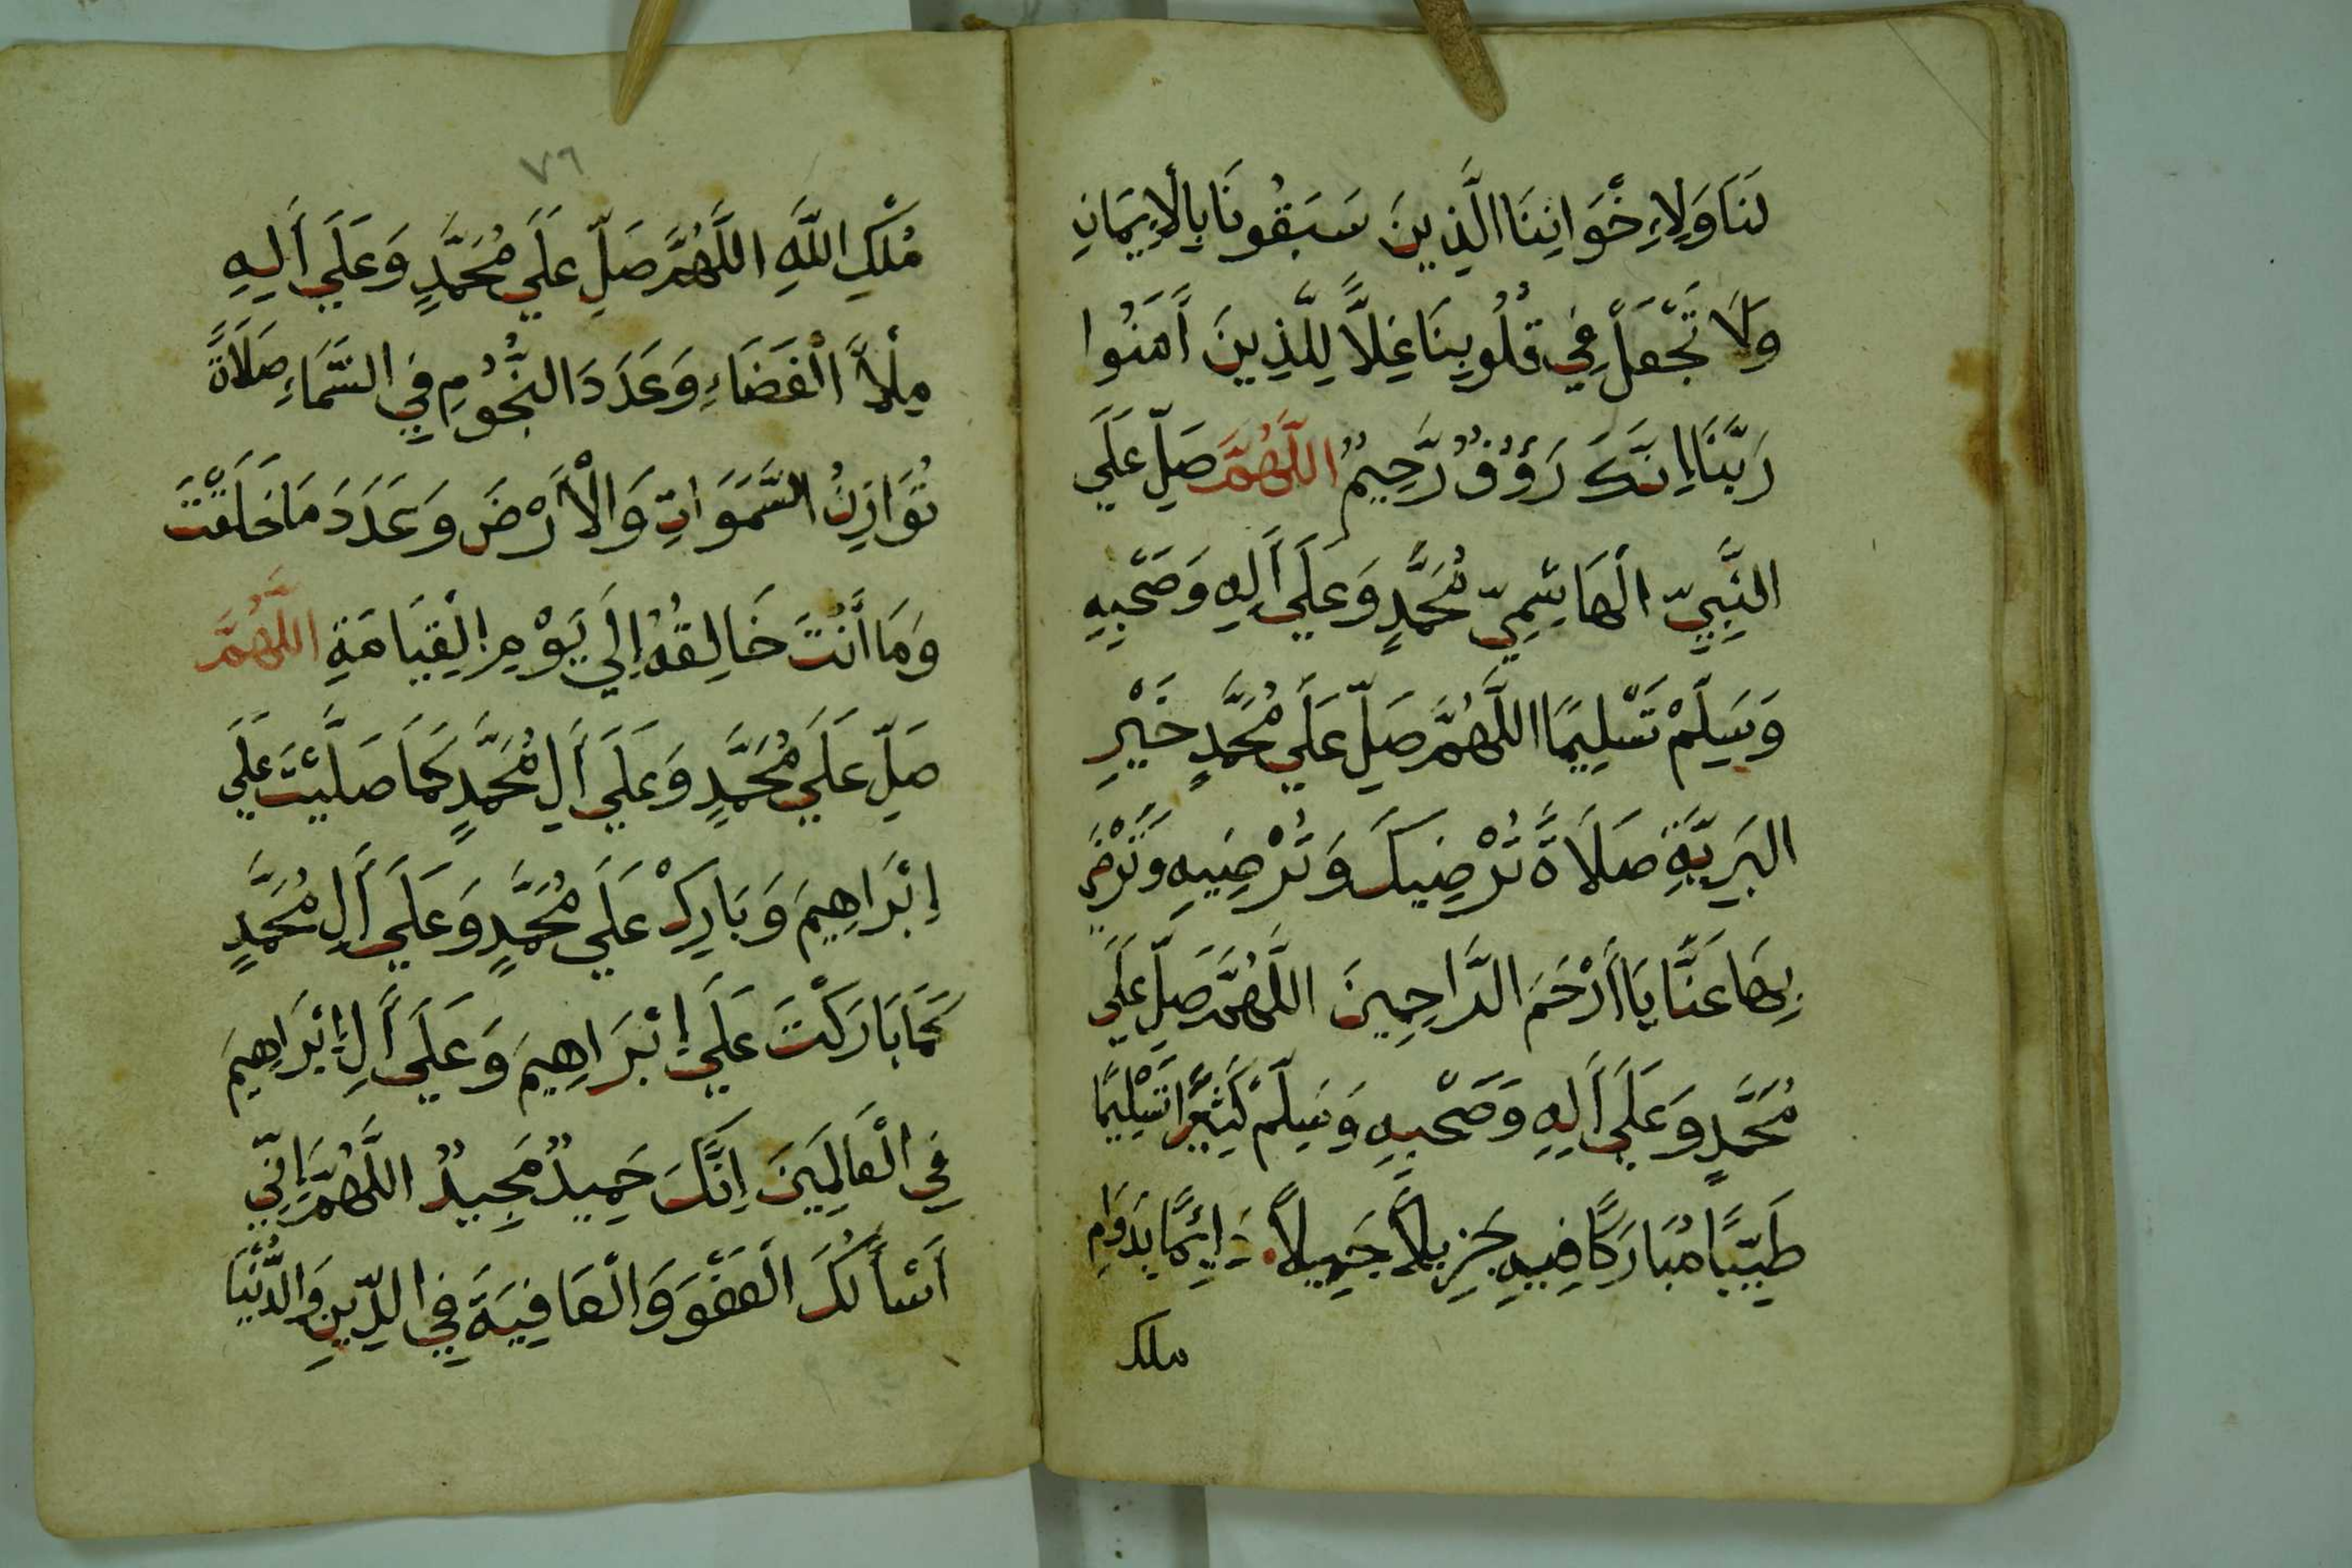 لَنَا وَلِاِخْوَانِنَا الَّذِينَ سَبَقُونَا بِالْاِيمَانِ
وَلَا تَجْعَلْ فِي قُلُوبِنَا غِلًّا لِلَّذِينَ أَمَنُوا
رَبَّنَا اِنَّكَ رَؤُفٌ رَّحِيمٌ اللَّهُمَّ صَلِّ عَلَي
النَّبِيِّ الْهَاشِمِيِّ مُحَمَّدٍ وَعَلَي أَلِهِ وَصَحْبِهِ
وَسَلِّمْ تَسْلِيمًا اللَّهُمَّ صَلِّ عَلَي مُحَمَّدٍ خَيْرِ
البَرِيَّةِ صَلَاةً تُرْضِيكَ وَتُرْضِيهِ وَتَرْضَي
بِهَا عَنَّا يَا أَرْحَمَ الرَّاحِمِينَ اللَّهُمَّ صَلِّ عَلَي
مُحَمَّدٍ وَعَلَي أَلِهِ وَصَحْبِهِ وَسَلِّمْ كَثِيرًا تَسْلِيمًا
طَيِّبًا مُبَارَكًا فِيهِ جَزِيلًا جَمِيلًا دَائِمًا بِدَوَامِ
ملك
٧٦
مُلْكِ اللَّهِ اللَّهُمَّ صَلِّ عَلَي مُحَمَّدٍ وَعَلَي أَلِهِ
مِلْأَ الْفَضَاءِ وَعَدَدَ النُّجُومِ فِي السَّمَاءِ صَلَاةً
تُوَازِنُ السَّمَوَاتِ وَالْأَرْضَ وَعَدَدَ مَا خَلَقْتَ
وَمَا أَنْتَ خَالِقُهُ اِلَي يَوْمِ الْقِيَامَةِ اللَّهُمَّ
صَلِّ عَلَي مُحَمَّدٍ وَعَلَي أَلِ مُحَمَّدٍ كَمَا صَلَّيْتَ عَلَي
إِبْرَاهِيمَ وَبَارِكْ عَلَي مُحَمَّدٍ وَعَلَي أَلِ مُحَمَّدٍ
كَمَا بَارَكْتَ عَلَي إِبْرَاهِيمَ وَعَلَي أَلِ إِبْرَاهِيمَ
فِي الْعَالَمِينَ اِنَّكَ حَمِيدٌ مَجِيدٌ اللَّهُمَّ اِنِّي
اَسْأَلُكَ الْعَفْوَ وَالْعَافِيَةَ فِي الدِّينِ وَالدُّنْيَا